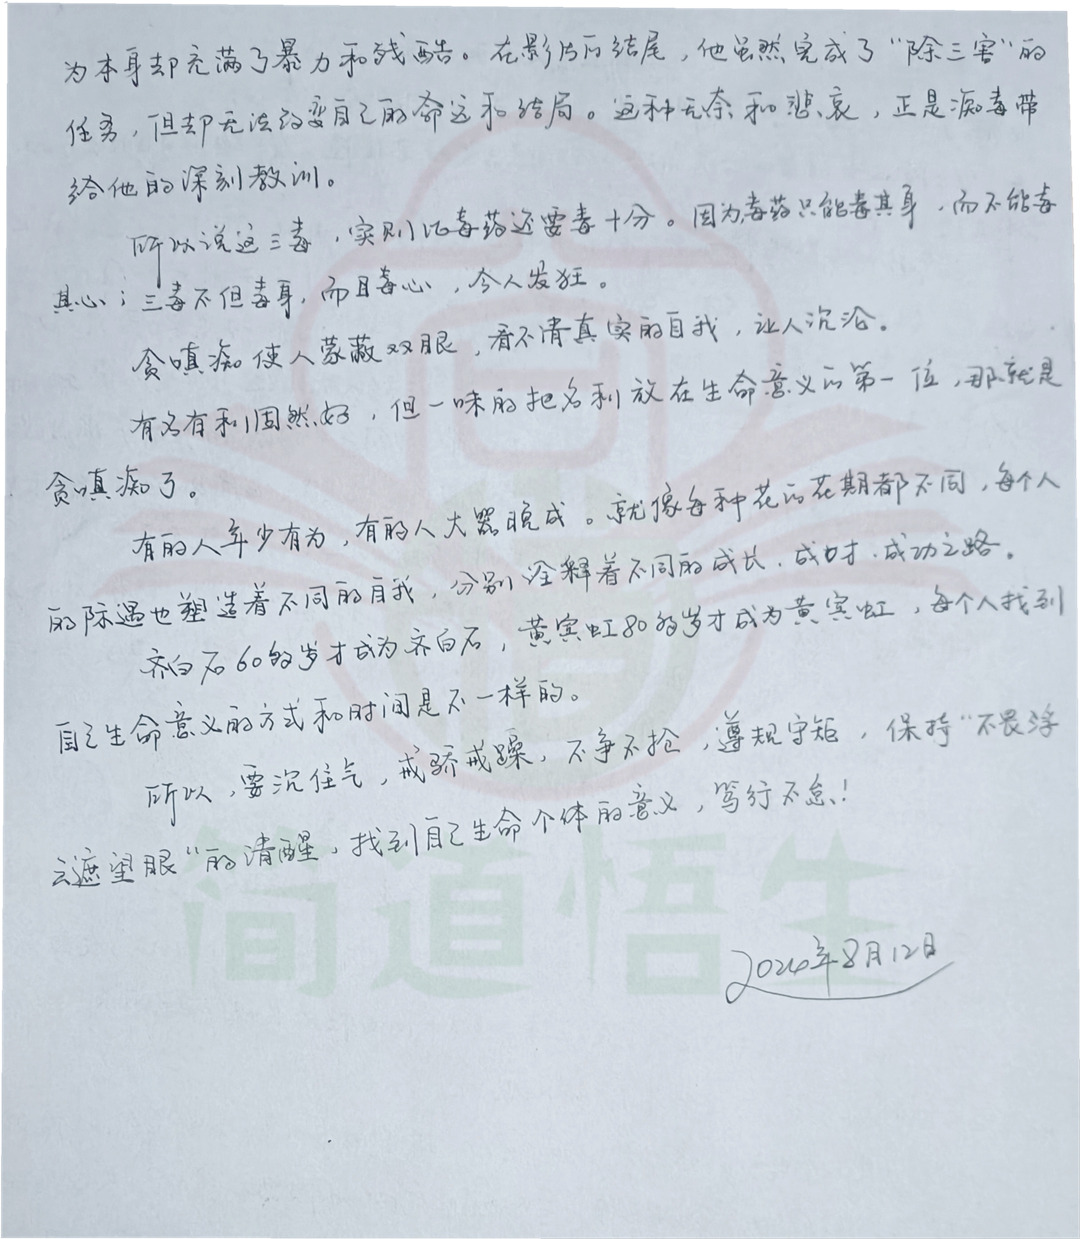 为本身却充满了暴力和残酷。在影片的结尾，他虽然完成了“除三害”的
任务，但却无法改变自己的命运和结局。这种无奈和悲哀，正是痴毒带
给他的深刻教训。
所以说这三毒，实则比毒药还要毒十分。因为毒药只能毒其身，而不能毒
其心；三毒不但毒身，而且毒心，令人发狂。
贪嗔痴使人蒙蔽双眼，看不清真实的自我，让人沉沦。
有名有利固然好，但一味的把名利放在生命意义的第一位，那就是
贪嗔痴了。
有的人年少有为，有的人大器晚成。就像每种花的花期都不同，每个人
的际遇也塑造着不同的自我，分别诠释着不同的成长、成才、成功之路。
齐白石60的岁才成为齐白石，黄宾虹80的岁才成为黄宾虹，每个人找到
自己生命意义的方式和时间是不一样的。
所以，要沉住气，戒骄戒躁，不争不抢，遵规守矩，保持“不畏浮
云遮望眼”的清醒，找到自己生命个体的意义，笃行不怠！
2024年8月12日
简道悟生